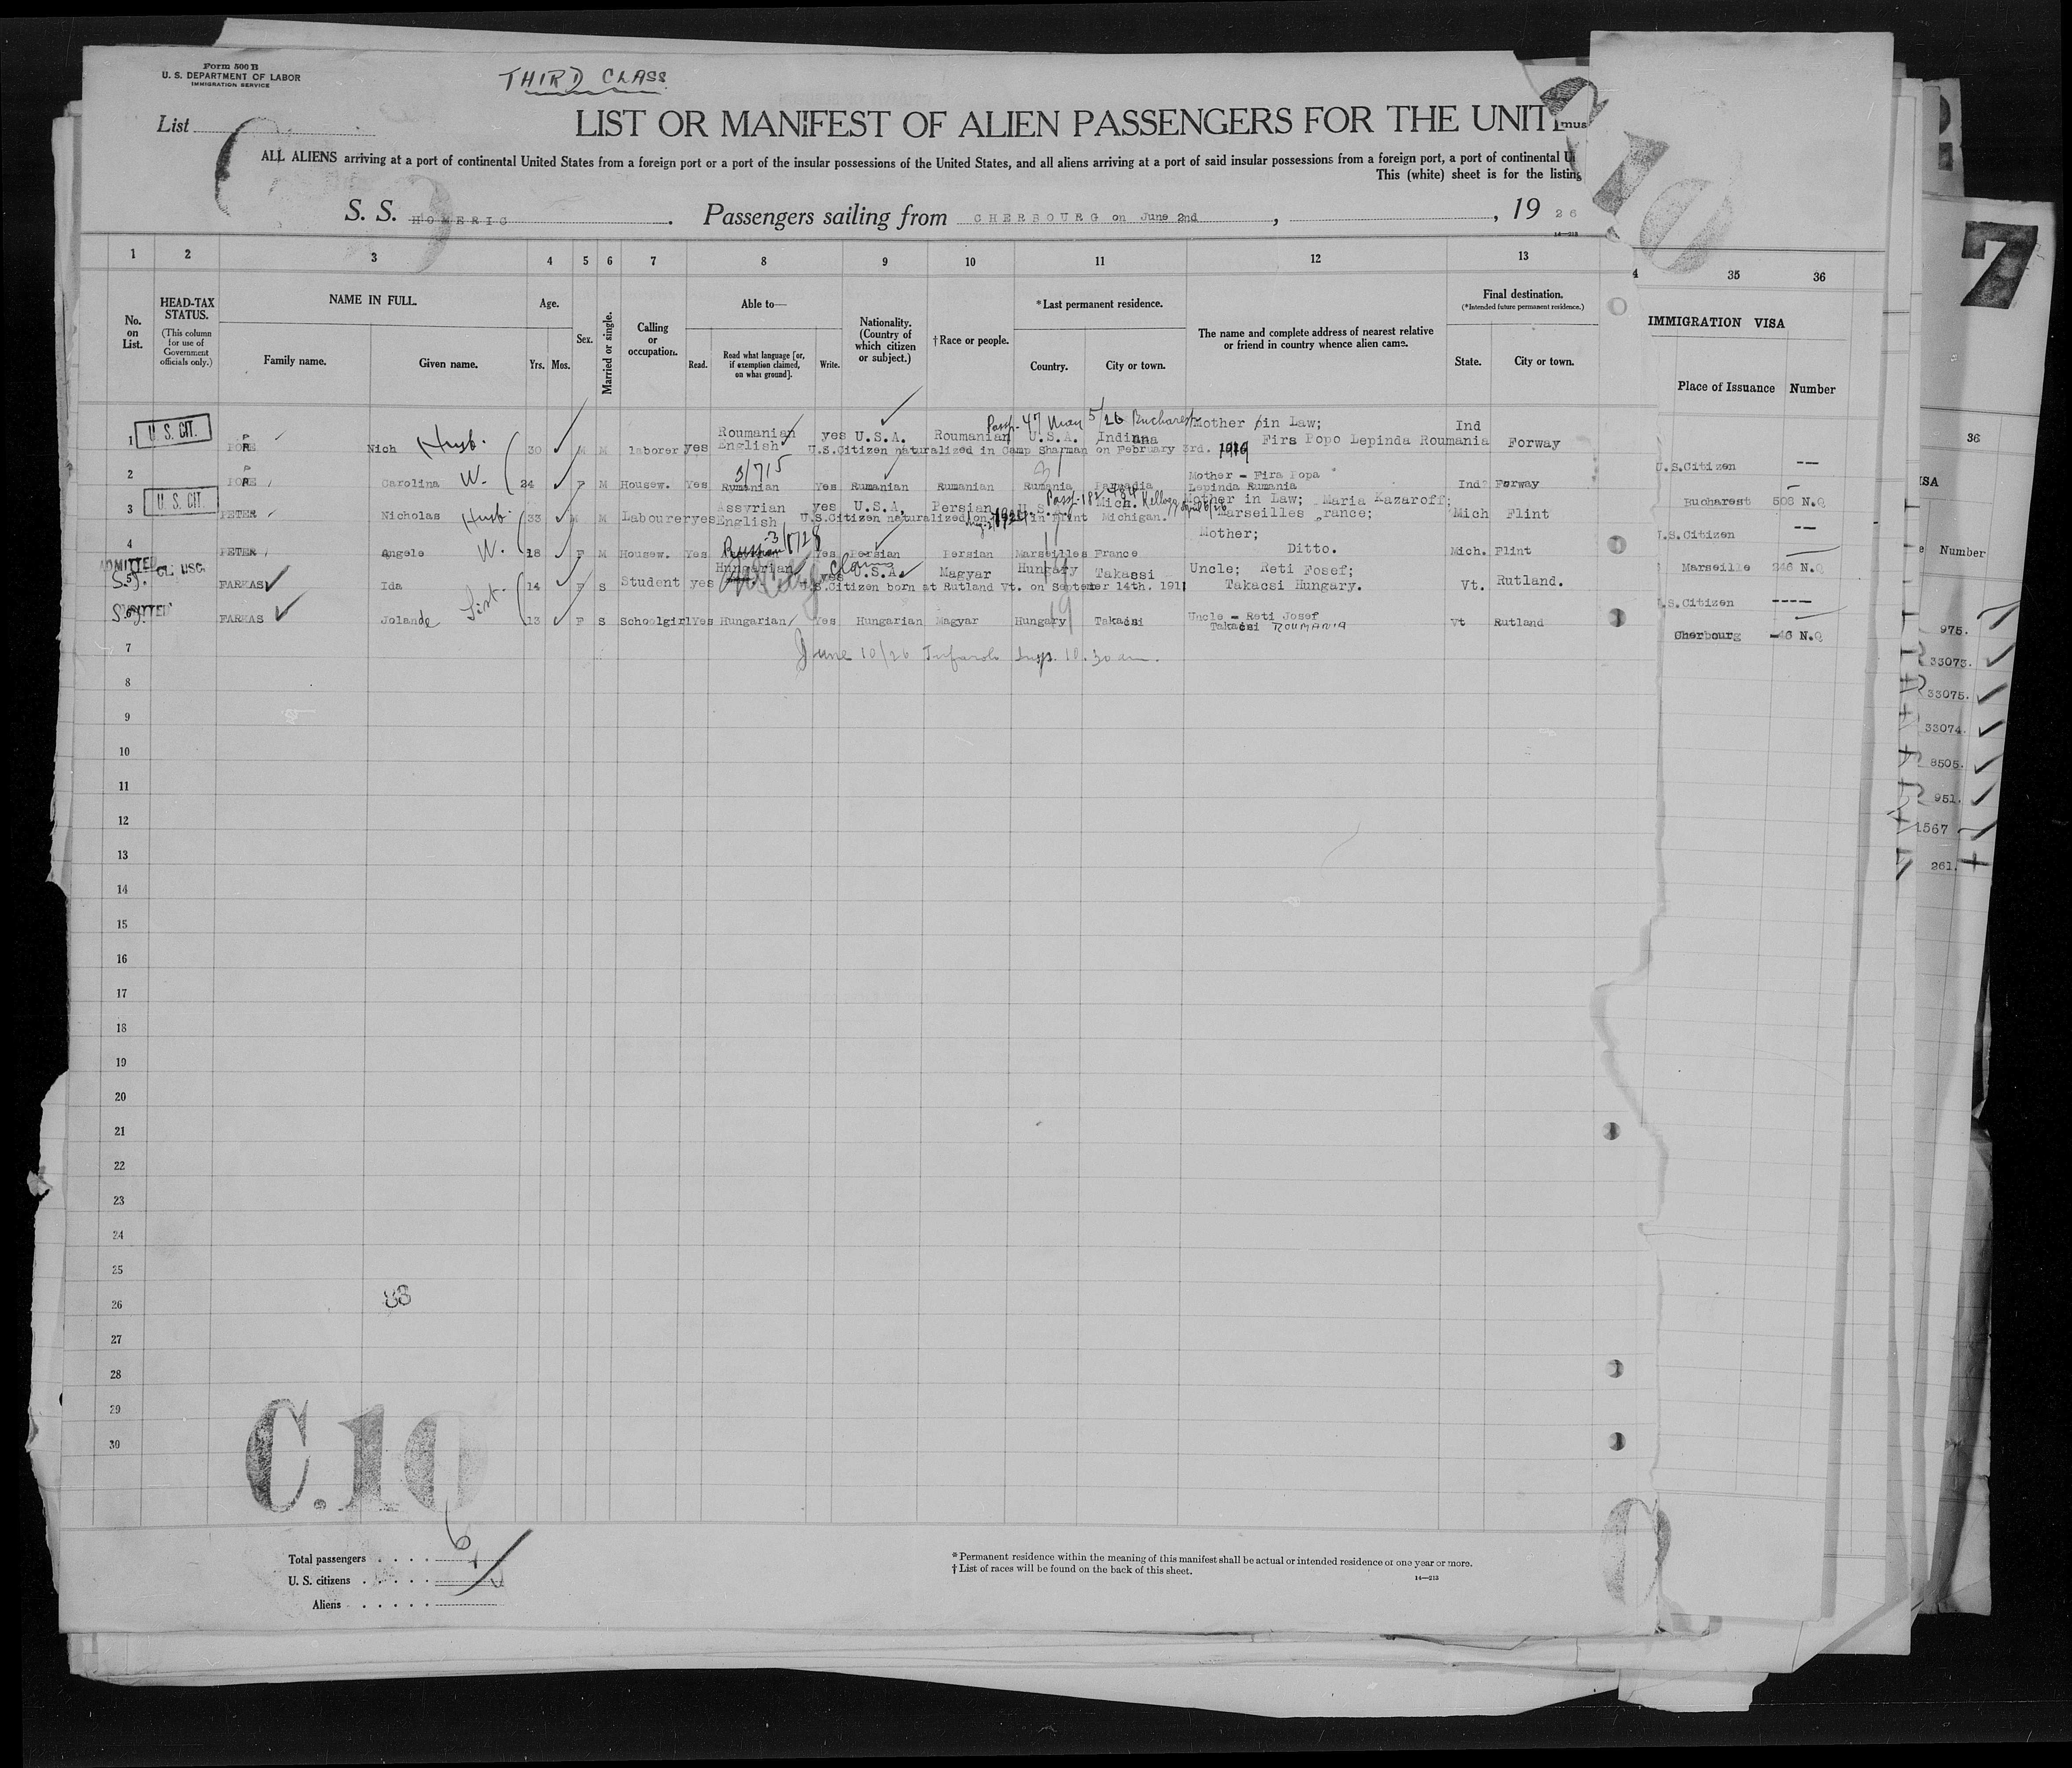 Form 500 B
U. S. DEPARTMENT OF LABOR
IMMIGRATION SERVICE
THIRD CLASS
List
LIST OR MANIFEST OF ALIEN PASSENGERS FOR THE UNIT
mus
ALL ALIENS arriving at a port of continental United States from a foreign port or a port of the insular possessions of the United States, and all aliens arriving at a port of said insular possessions from a foreign port, a port of continental U
This (white) sheet is for the listing
S. S. HOMERIC. Passengers sailing from CHERBOURG on June 2nd, , 19 26
14—213
10
7
1 2 3 4 5 6 7 8 9 10 11 12 13
4 35 36
No. on List.
HEAD-TAX STATUS.
(This column for use of Government officials only.)
NAME IN FULL.
Family name. Given name.
Age.
Yrs. Mos.
Sex.
Married or single.
Calling or occupation.
Able to—
Read. Read what language [or, if exemption claimed, on what ground]. Write.
Nationality. (Country of which citizen or subject.)
† Race or people.
*Last permanent residence.
Country. City or town.
The name and complete address of nearest relative or friend in country whence alien came.
Final destination.
(*Intended future permanent residence.)
State. City or town.
IMMIGRATION VISA
Place of Issuance Number
36
ISA
Number
Pass. 47 May 5/26 Bucharest
1 U. S. CIT. POPE Nich Husb. 30 M M laborer yes Roumanian English yes U.S.A. Roumanian U.S.A. Indiana Mother in Law; Firs Popo Lepinda Roumania Ind Forway
U.S.Citizen naturalized in Camp Sharman on February 3rd. 1919
U.S.Citizen ---
3/715
2 POPE Carolina W. 24 F M Housew. Yes Rumanian Yes Rumanian Rumanian Rumania Mother - Fira Popa Lepinda Rumania Ind? Forway
Bucharest 508 N.Q
3 U. S. CIT. PETER Nicholas Husb. 33 M M Labourer yes Assyrian English yes U.S.A. Persian U.S. Mich. Mother in Law; Maria Kazaroff; Marseilles rance; Mich Flint
U.S.Citizen naturalized on 1924 in Flint Michigan.
.S.Citizen ---
4 PETER Angele W. 18 F M Housew. Yes Yes Persian Persian Marseilles France Mother; Ditto. Mich. Flint
Marseille 246 N.Q
ADMITTED
5 S.J. FARKAS Ida 14 F S Student yes Hungarian yes U.S.A. Magyar Hungary Takacsi Uncle; Reti Fosef; Takacsi Hungary. Vt. Rutland.
U.S.Citizen born at Rutland Vt. on Septemer 14th. 1911
.S.Citizen ----
6 FARKAS Jolande Sist. 13 F S Schoolgirl Yes Hungarian Yes Hungarian Magyar Hungary Takacsi Uncle - Reti Josef Takacsi ROUMANIA Vt Rutland
Cherbourg -46 N.Q
7 June 10/26 Insp. 10.30 am.
8
9
10
11
12
13
14
15
16
17
18
19
20
21
22
23
24
25
26
27
28
29
30
975.
33073.
33075.
33074.
8505.
951.
1567
261.
C.10
Total passengers . . . . 6
U. S. citizens . . . . .
Aliens . . . . .
* Permanent residence within the meaning of this manifest shall be actual or intended residence of one year or more.
† List of races will be found on the back of this sheet.
14—213